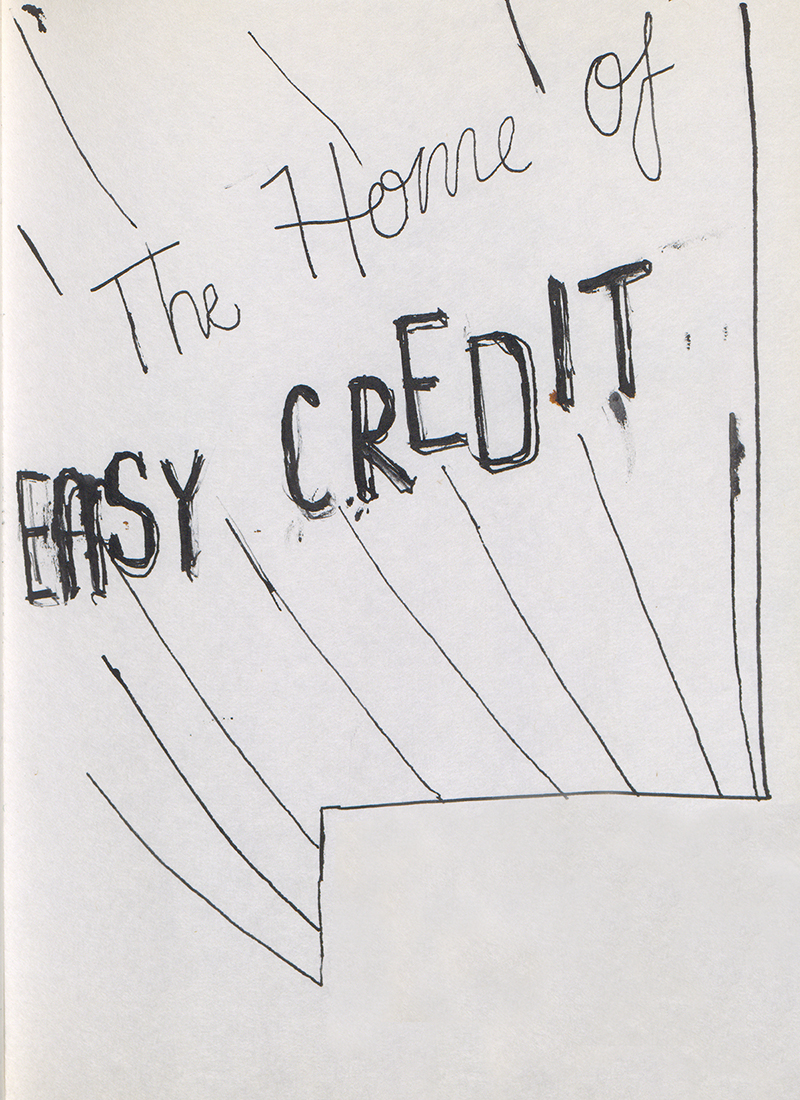 The Home of
EASY CREDIT